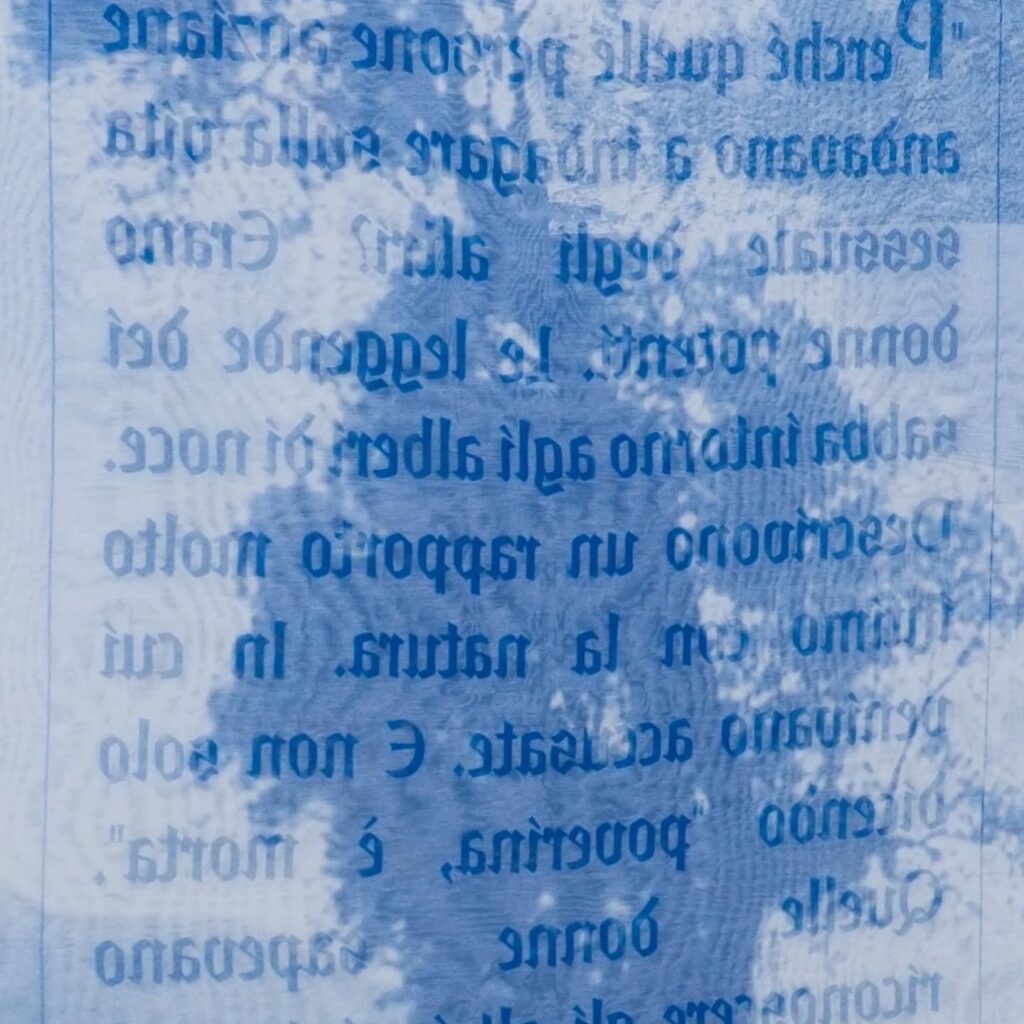 "Perché quelle persone anziane
andavano a indagare sulla vita
sessuale degli altri? Erano
donne potenti. Le leggende dei
sabba intorno agli alberi di noce.
Descrivono un rapporto molto
intimo con la natura. In cui
venivano accusate. E non solo
dicendo "poverina, è morta".
Quelle donne sapevano
riconoscere gli